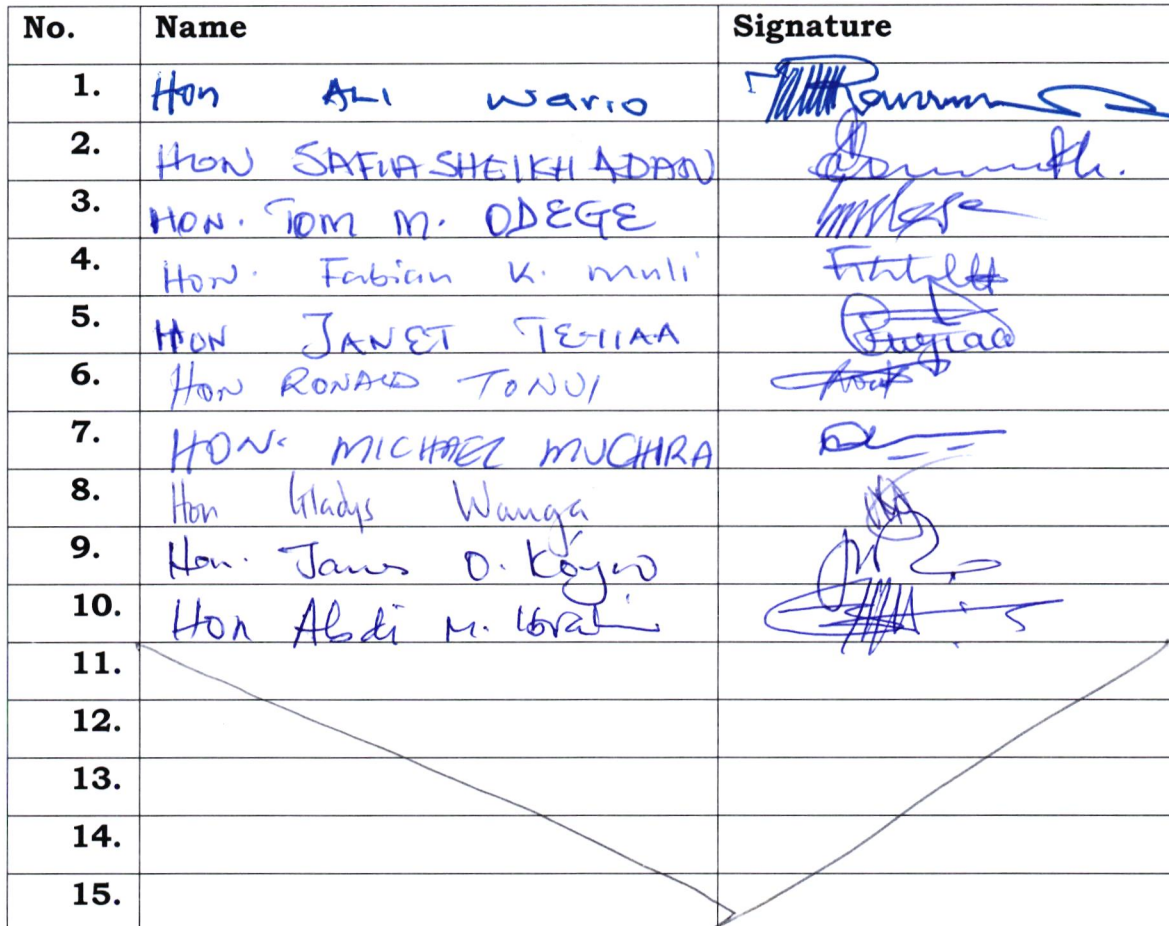 No. Name Signature
1. Hon ALI Wario
2. HON SAFIA SHEIKH ADAN
3. HON. TOM M. ODEGE
4. Hon. Fabian K. Muli
5. HON JANET TEIYAA
6. Hon RONALD TONUI
7. HON. MICHAEL MUCHIRA
8. Hon Gladys Wanga
9. Hon. James O. Koyoo
10. Hon Abdi M. Ibrahim
11.
12.
13.
14.
15.